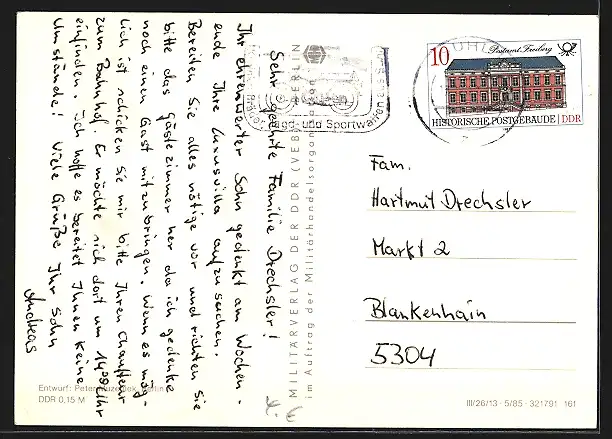 Sehr geehrte Familie Drechsler!
Ihr ehrenwerter Sohn gedenkt am Wochen-
ende Ihre Luxusvilla aufzusuchen.
Bereiten Sie alles nötige vor und richten Sie
bitte das Gästezimmer her da ich gedenke
noch einen Gast mitzubringen. Wenn es mög-
lich ist schicken Sie mir bitte Ihren Chauffeur
zum Bahnhof. Er möchte sich dort um 14⁰⁰ Uhr
einfinden. Ich hoffe es bereitet Ihnen keine
Umstände! Viele Grüße Ihr Sohn
Andreas
MILITÄRVERLAG DER DDR (VEB) BERLIN
im Auftrag der Militärhandelsorganisation
Jagd- und Sportwaffen aus
SUHL
10
Postamt Freiberg
HISTORISCHE POSTGEBÄUDE DDR
Fam.
Hartmut Drechsler
Markt 2
Blankenhain
5304
Entwurf: Peter
DDR 0,15 M
III/26/13 · 5/85 · 321791 161